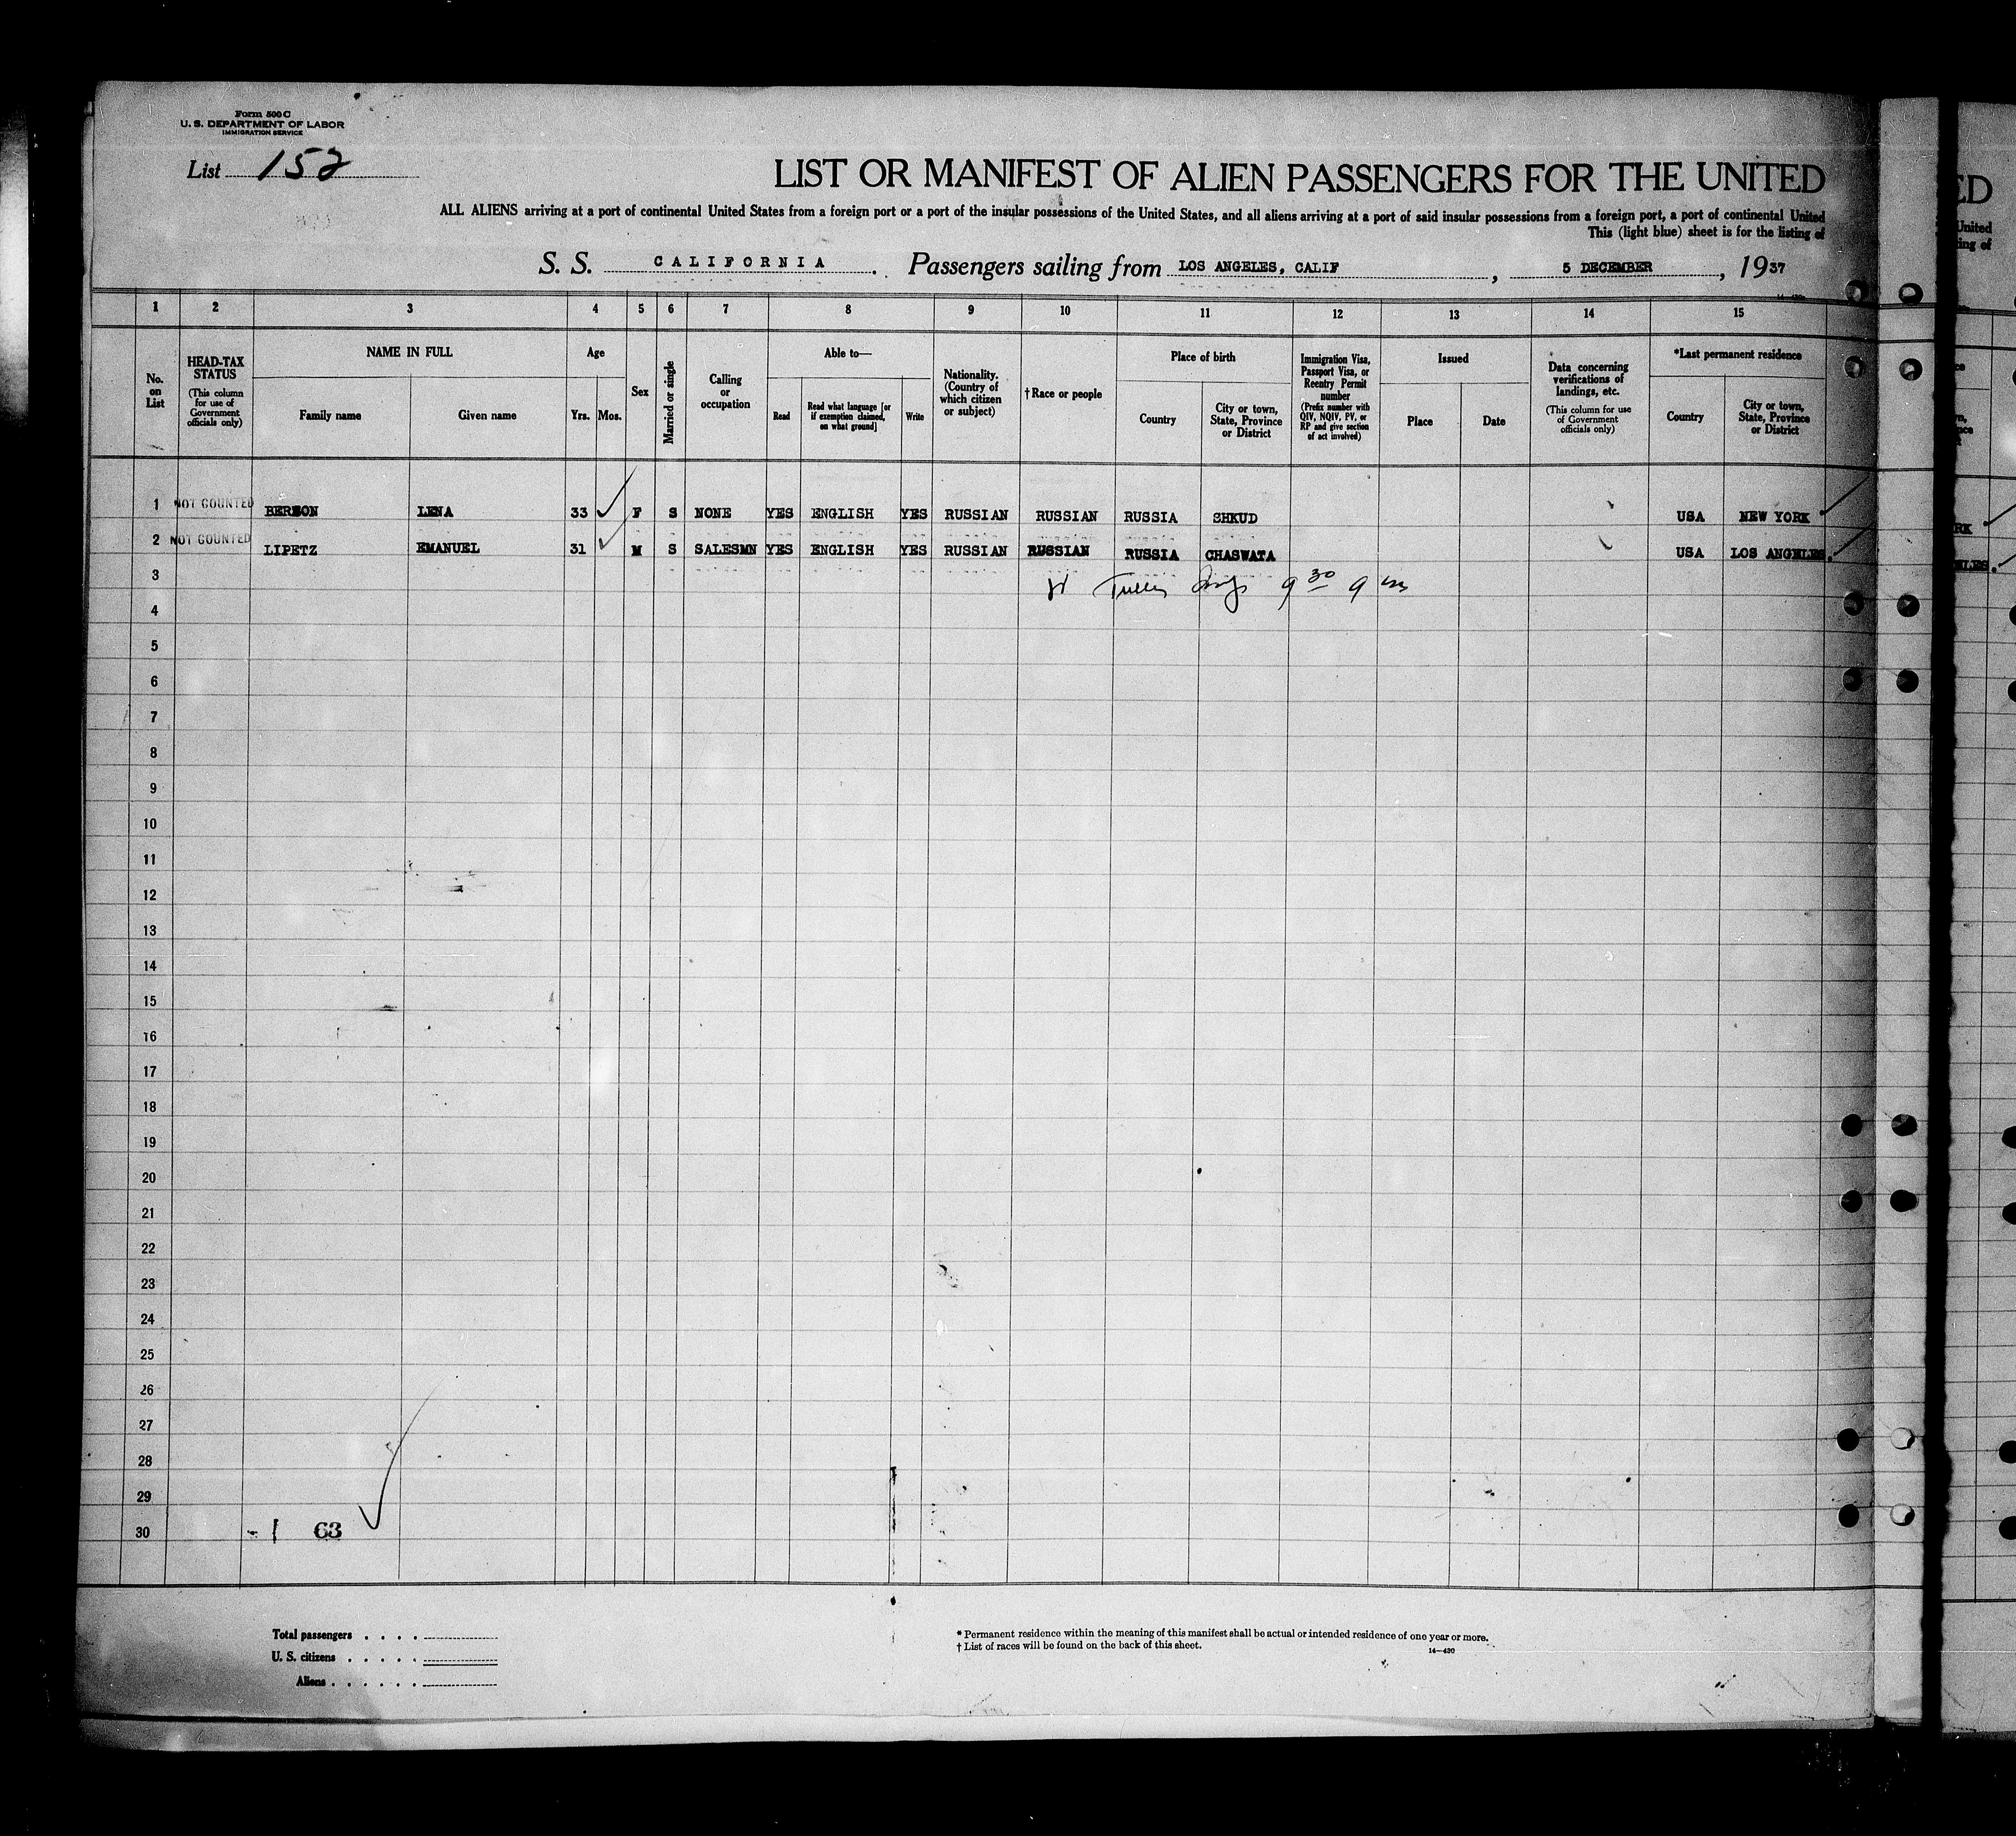 Form 500 C
U. S. DEPARTMENT OF LABOR
IMMIGRATION SERVICE
List 152
LIST OR MANIFEST OF ALIEN PASSENGERS FOR THE UNITED
ALL ALIENS arriving at a port of continental United States from a foreign port or a port of the insular possessions of the United States, and all aliens arriving at a port of said insular possessions from a foreign port, a port of continental United
This (light blue) sheet is for the listing of
S. S. CALIFORNIA. Passengers sailing from LOS ANGELES, CALIF, 5 DECEMBER, 1937
1 2 3 4 5 6 7 8 9 10 11 12 13 14 15
No. on List
HEAD-TAX STATUS (This column for use of Government officials only)
NAME IN FULL
Family name
Given name
Age
Yrs. Mos.
Sex
Married or single
Calling or occupation
Able to—
Read
Read what language [or if exemption claimed, on what ground]
Write
Nationality. (Country of which citizen or subject)
†Race or people
Place of birth
Country
City or town, State, Province or District
Immigration Visa, Passport Visa, or Reentry Permit number (Prefix number with QIV, NQIV, PV, or RP and give section of act involved)
Issued
Place
Date
Data concerning verifications of landings, etc. (This column for use of Government officials only)
*Last permanent residence
Country
City or town, State, Province or District
1 NOT COUNTED BERSON LENA 33 F S NONE YES ENGLISH YES RUSSIAN RUSSIAN RUSSIA SHKUD USA NEW YORK
2 NOT COUNTED LIPETZ EMANUEL 31 M S SALESMN YES ENGLISH YES RUSSIAN RUSSIAN RUSSIA CHASWATA USA LOS ANGELES.
3
4
5
6
7
8
9
10
11
12
13
14
15
16
17
18
19
20
21
22
23
24
25
26
27
28
29
30 - 1 63
Total passengers
U. S. citizens
Aliens
* Permanent residence within the meaning of this manifest shall be actual or intended residence of one year or more.
† List of races will be found on the back of this sheet.
14—430